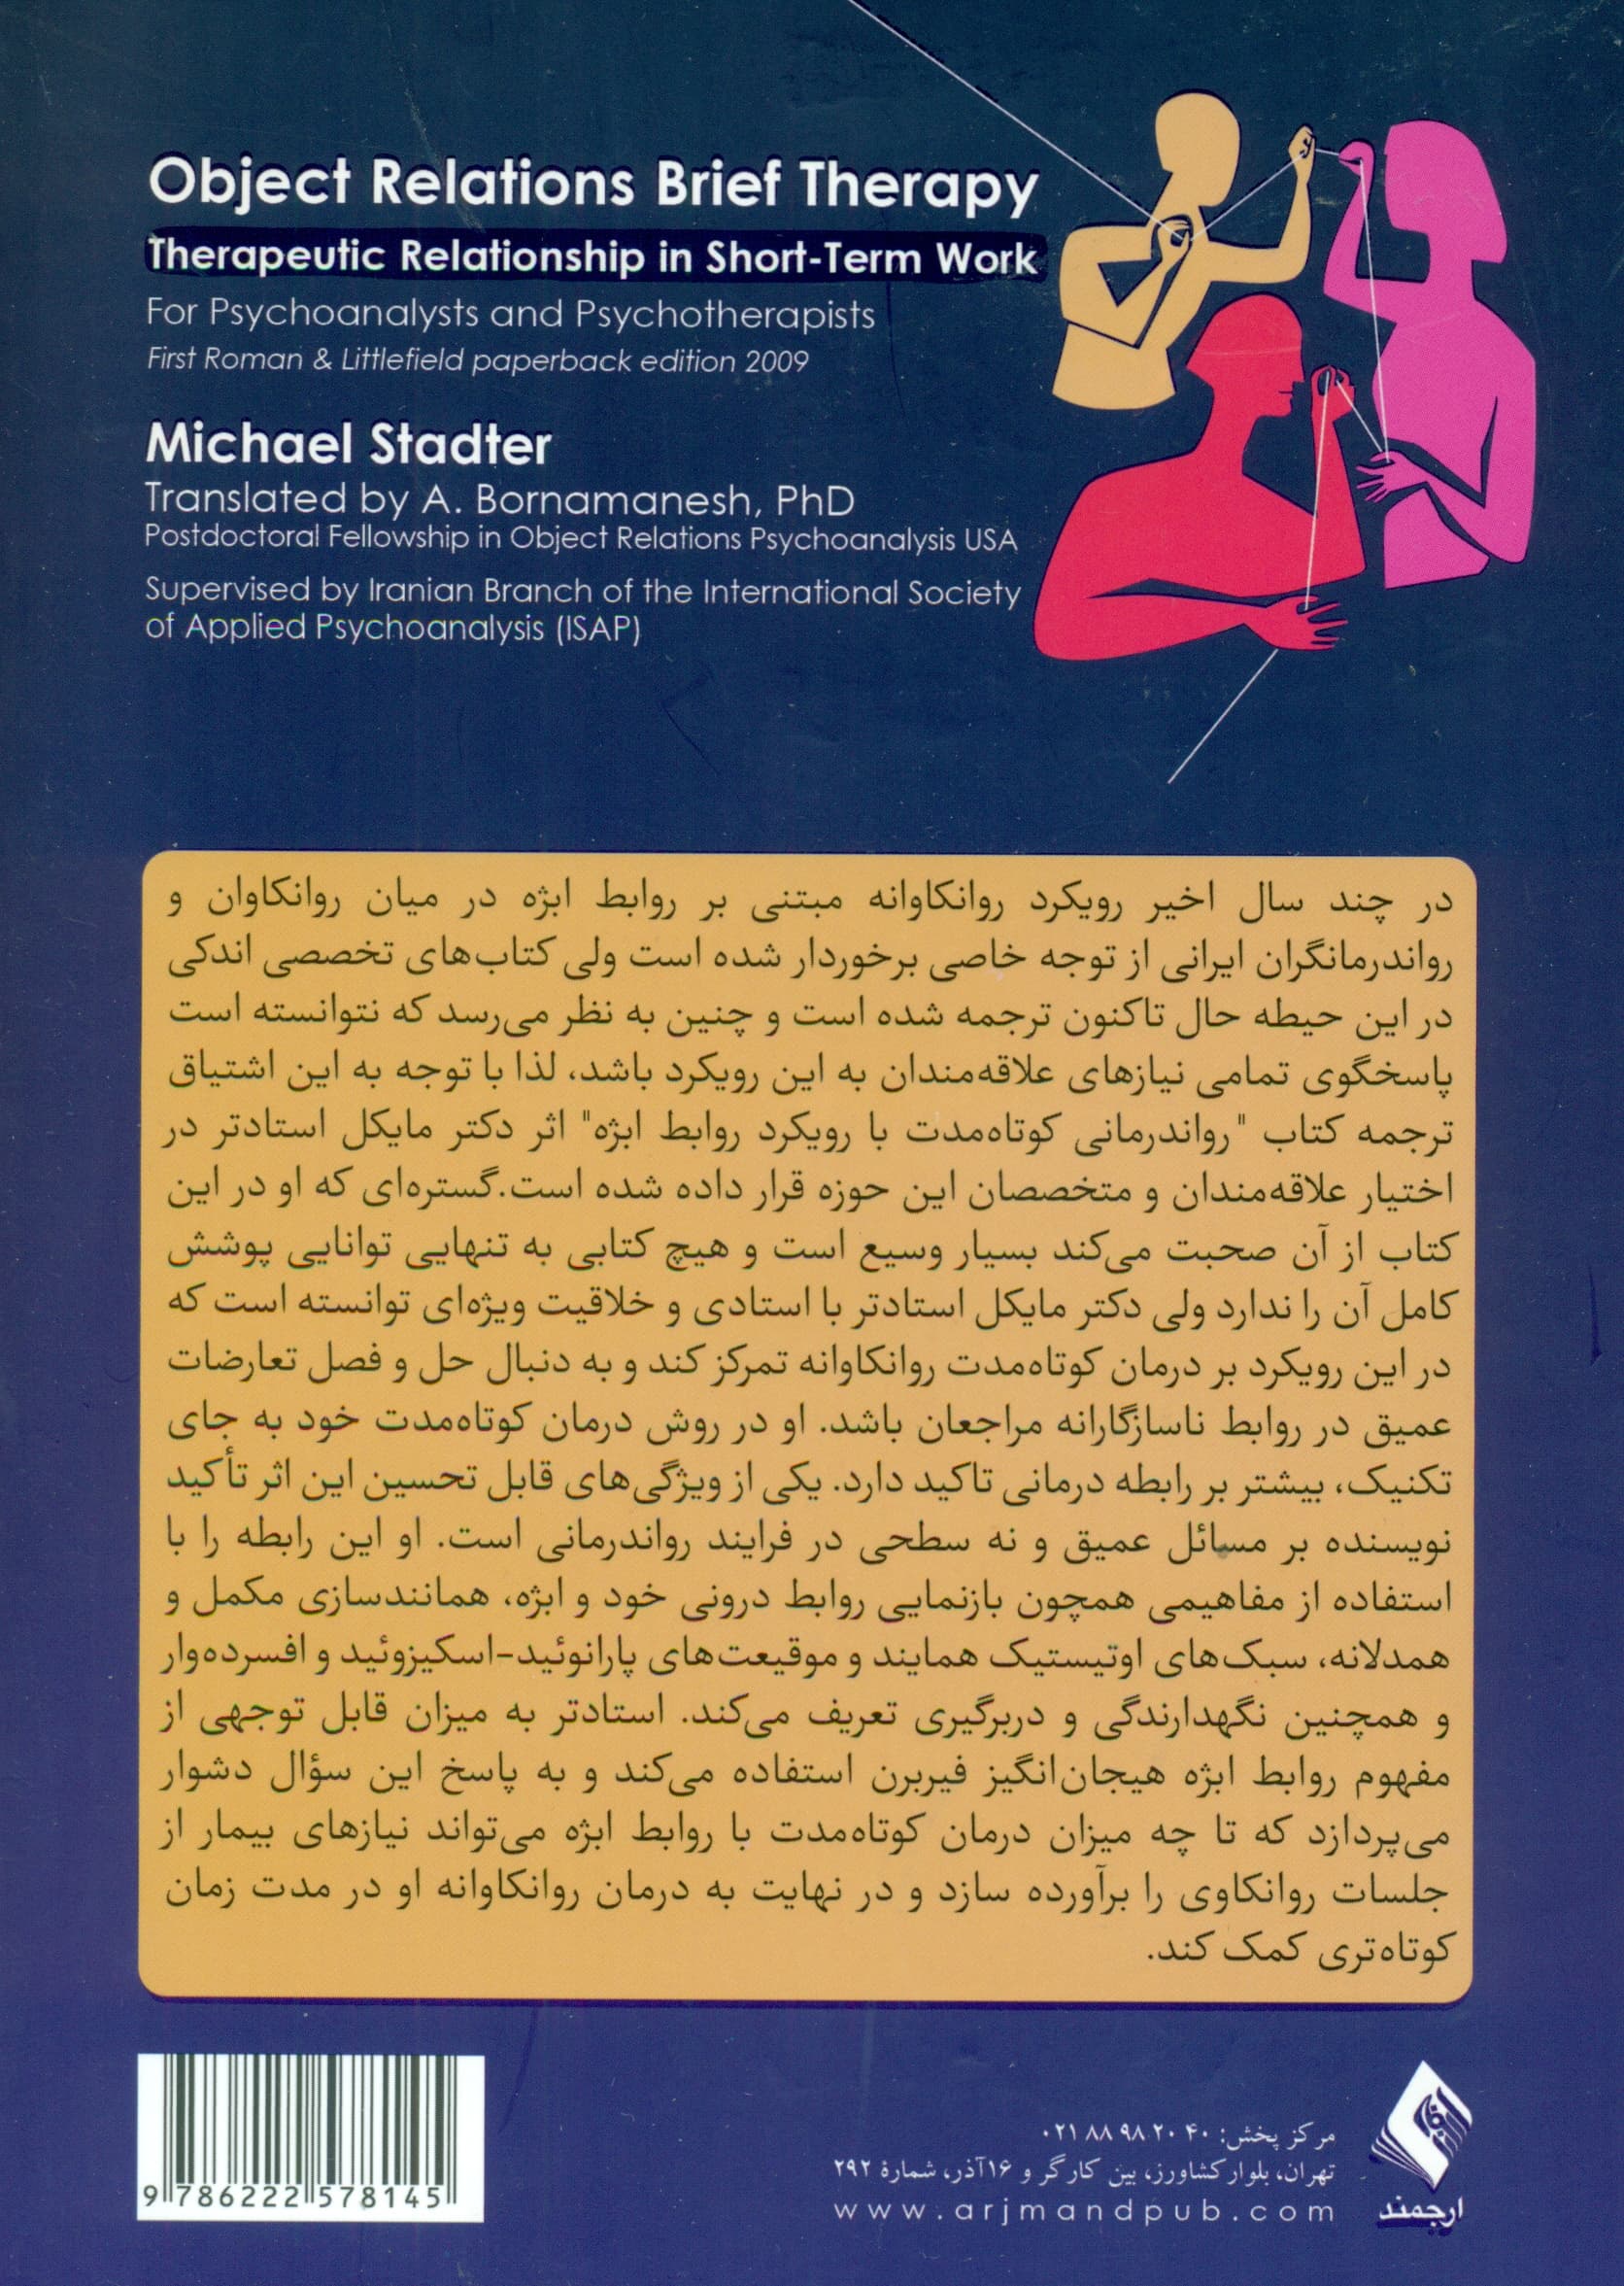 Object Relations Brief Therapy
Therapeutic Relationship in Short-Term Work
For Psychoanalysts and Psychotherapists
First Roman & Littlefield paperback edition 2009
Michael Stadter
Translated by A. Bornamanesh, PhD
Postdoctoral Fellowship in Object Relations Psychoanalysis USA
Supervised by Iranian Branch of the International Society
of Applied Psychoanalysis (ISAP)
در چند سال اخیر رویکرد روانکاوانه مبتنی بر روابط ابژه در میان روانکاوان و
رواندرمانگران ایرانی از توجه خاصی برخوردار شده است ولی کتاب‌های تخصصی اندکی
در این حیطه حال تاکنون ترجمه شده است و چنین به نظر می‌رسد که نتوانسته است
پاسخگوی تمامی نیازهای علاقه‌مندان به این رویکرد باشد، لذا با توجه به این اشتیاق
ترجمه کتاب "رواندرمانی کوتاه‌مدت با رویکرد روابط ابژه" اثر دکتر مایکل استادتر در
اختیار علاقه‌مندان و متخصصان این حوزه قرار داده شده است.گستره‌ای که او در این
کتاب از آن صحبت می‌کند بسیار وسیع است و هیچ کتابی به تنهایی توانایی پوشش
کامل آن را ندارد ولی دکتر مایکل استادتر با استادی و خلاقیت ویژه‌ای توانسته است که
در این رویکرد بر درمان کوتاه‌مدت روانکاوانه تمرکز کند و به دنبال حل و فصل تعارضات
عمیق در روابط ناسازگارانه مراجعان باشد. او در روش درمان کوتاه‌مدت خود به جای
تکنیک، بیشتر بر رابطه درمانی تاکید دارد. یکی از ویژگی‌های قابل تحسین این اثر تأکید
نویسنده بر مسائل عمیق و نه سطحی در فرایند رواندرمانی است. او این رابطه را با
استفاده از مفاهیمی همچون بازنمایی روابط درونی خود و ابژه، همانندسازی مکمل و
همدلانه، سبک‌های اوتیستیک همایند و موقیعت‌های پارانوئید-اسکیزوئید و افسرده‌وار
و همچنین نگهدارندگی و دربرگیری تعریف می‌کند. استادتر به میزان قابل توجهی از
مفهوم روابط ابژه هیجان‌انگیز فیربرن استفاده می‌کند و به پاسخ این سؤال دشوار
می‌پردازد که تا چه میزان درمان کوتاه‌مدت با روابط ابژه می‌تواند نیازهای بیمار از
جلسات روانکاوی را برآورده سازد و در نهایت به درمان روانکاوانه او در مدت زمان
کوتاه‌تری کمک کند.
9 786222 578145
مرکز پخش: ۰۲۱ ۸۸ ۹۸ ۲۰ ۴۰
تهران، بلوار کشاورز، بین کارگر و ۱۶آذر، شمارهٔ ۲۹۲
www.arjmandpub.com
ارجمند